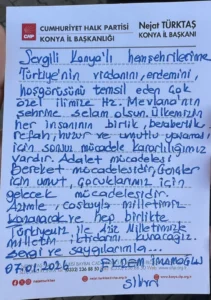 CUMHURİYET HALK PARTİSİ
KONYA İL BAŞKANLIĞI
Nejat TÜRKTAŞ
KONYA İL BAŞKANI
CHP
Sevgili Konya'lı hemşehrilerime
Türkiye'nin vicdanını, erdemini,
hoşgörüsünü temsil eden çok
özel ilimize Hz. Mevlana'nın
şehrine selam olsun. Ülkemizin
her insanının birlik, beraberlik
refah, huzur ve umutlu yaşaması
için sonsuz mücadele kararlılığımız
vardır. Adalet mücadelesi
Bereket mücadelesidir. Gençler
için umut, çocuklarımız için
gelecek mücadelesidir.
Azimle, coşkuyla milletimiz
kazanacak ve hep birlikte
Türkiyemiz ile Aziz Milletimizle
milletin iktidarını kuracağız.
Sevgi ve saygılarımla...
07.01.2026 EKREM İMAMOĞLU
Silivri